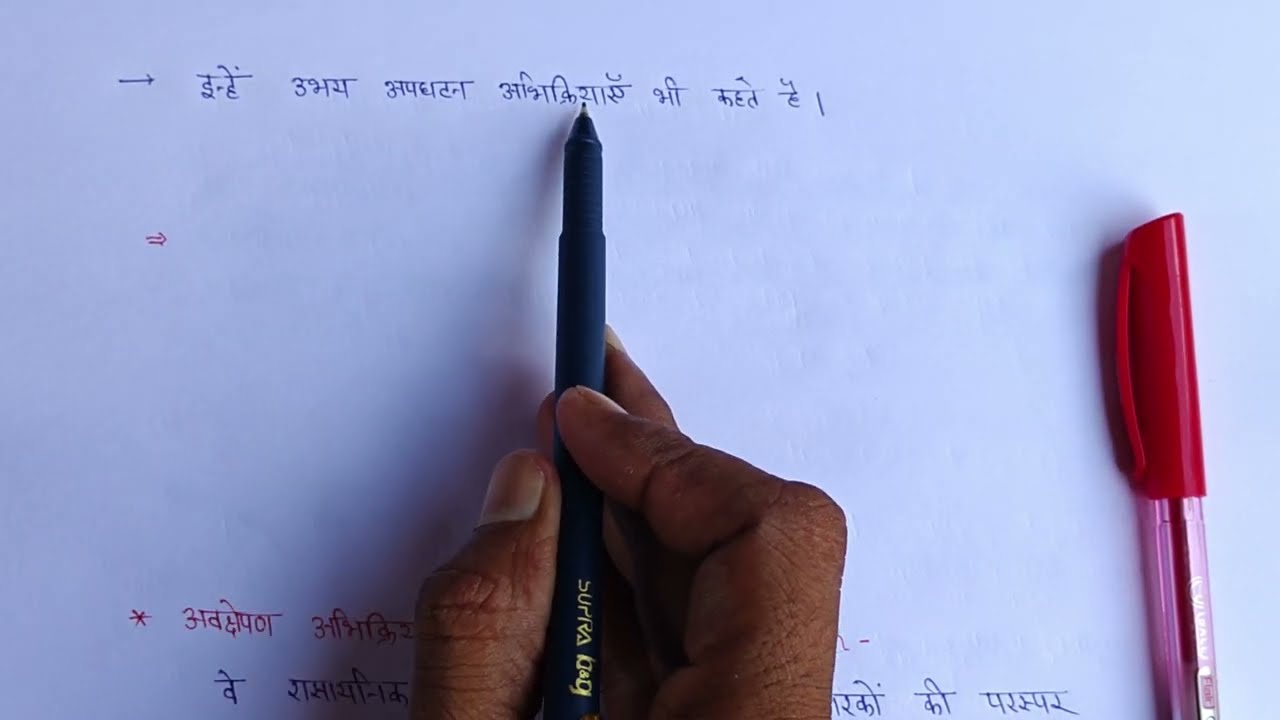 → इन्हें उभय अपघटन अभिक्रियाएँ भी कहते है।
⇒
* अवक्षेपण अभिक्रिय
वे रासायनिक रकों की परस्पर
SUPRA b&g
Flair